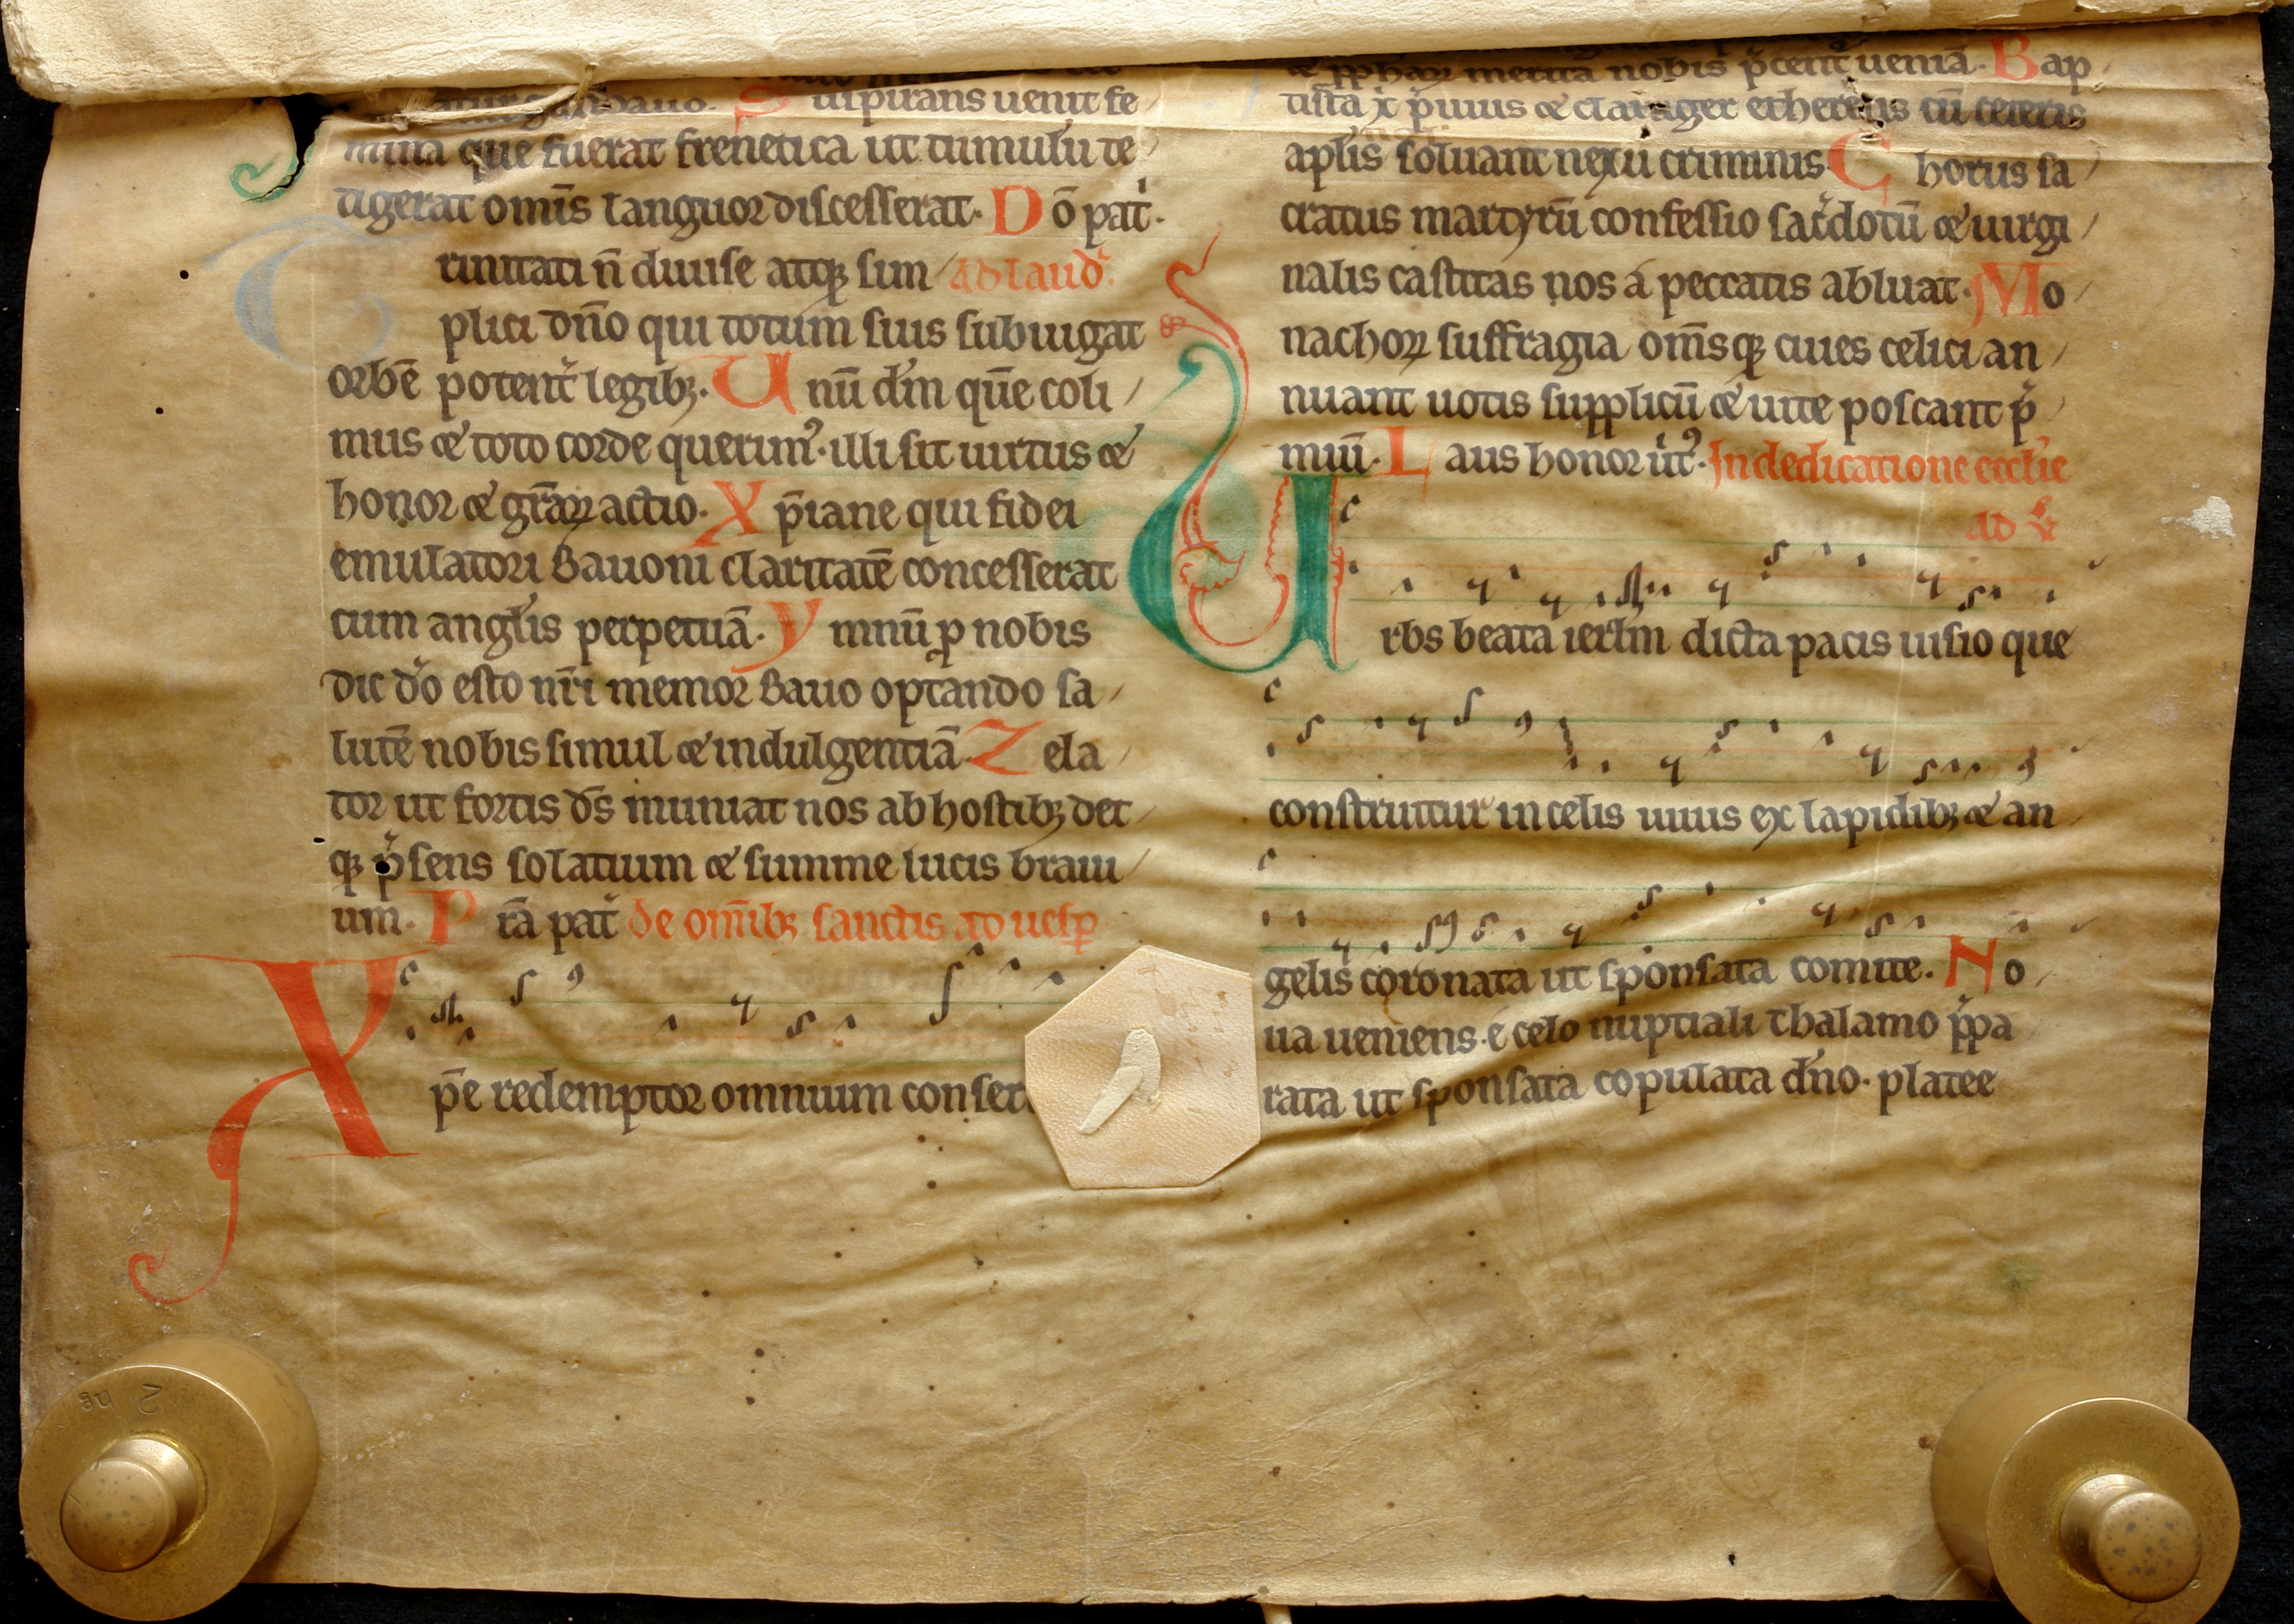 S uspirans uenit fe
mina que fuerat frenetica ut tumulū te
tigerat omīs languor discesserat. D ō pat̄.
T rinitati n̄ diuise atqꝫ sim ad laud̄.
plici dn̄o qui totum suis subiugat
orbē potent̄ legibꝫ. U nū dm̄ quē coli
mus ⁊ toto corde querimꝰ. illi sit uirtus ⁊
honor ⁊ grāꝝ actio. X p̄iane qui fidei
emulatori Bauoni claritatē concesserat
cum angl̄is perpetuā. Y mnū ꝓ nobis
dic do̊ esto nr̄i memor Bauo optando sa
lutē nobis simul ⁊ indulgentiā. Z ela
tor ut fortis ds̄ muniat nos ab hostibꝫ det
qꝫ p̄sens solatium ⁊ summe lucis braui
um. P rā pat̄ de om̄ibꝫ sanctis ad uesꝑ
X p̄e redemptor omnium conser
⁊ ꝓphaꝝ merita nobis p̄cent̄ ueniā. B ap
tista x̄ p̄uius ⁊ clauiger ethereus cū ceteris
apl̄is soluant nexū criminis C horus sa
cratus martyrū confessio sac̄dotū ⁊ uirgi
nalis castitas nos á peccatis abluat. M o
nachoꝝ suffragia om̄sqꝫ ciues celici an
nuant uotis supplicū ⁊ uite poscant p̄
miū. L aus honor ůt̓ꝰ. In dedicatione eccl̄ie
ad v̄
U rbs beata ierl̄m dicta pacis uisio que
construitur in celis uiuis ex lapidibꝫ ⁊ an
gelis coronata ut sponsata comite. N o
ua ueniens é celo nuptiali thalamo p̄pa
rata ut sponsata copulata dn̄o. platee
2 ng